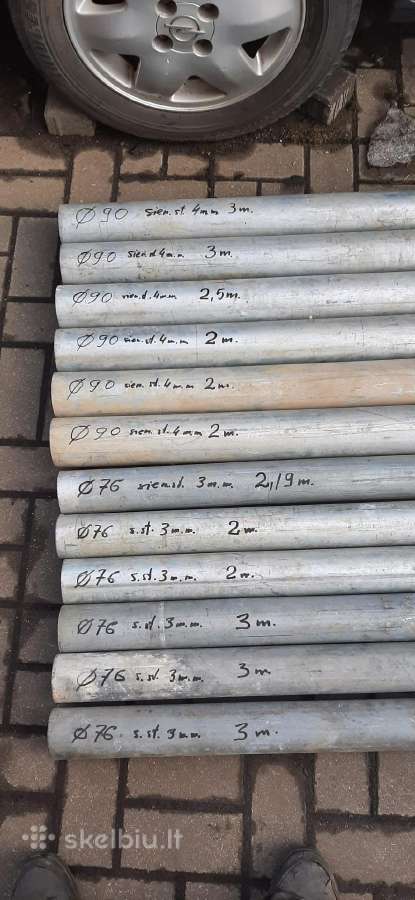 Ø90 sien. st. 4mm 3m.
Ø90 sien.st 4m.m 3m.
Ø90 sien.st. 4mm 2,5m.
Ø90 sien. st. 4m.m 2m.
Ø90 sien. st. 4m.m 2m.
Ø90 sien. st. 4mm 2m.
Ø76 sien.st. 3m.m. 2,19m.
Ø76 s.st. 3m.m. 2m.
Ø76 s.st. 3m.m. 2m.
Ø76 s.st. 3m.m. 3m.
Ø76 s.st. 3m.m. 3m.
Ø76. s.st. 3mm. 3m.
skelbiu.lt